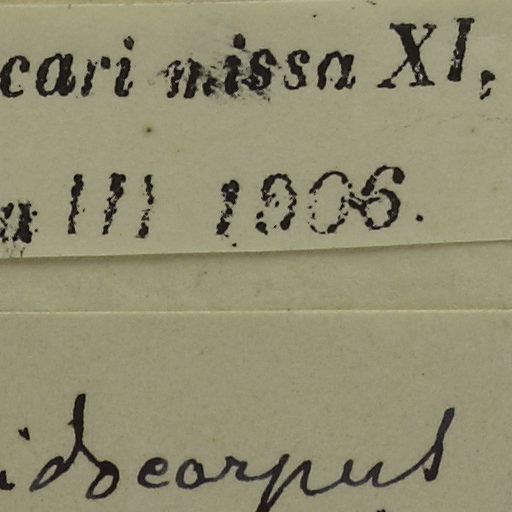 cari missa XI,
a III 1906.
idocarpus